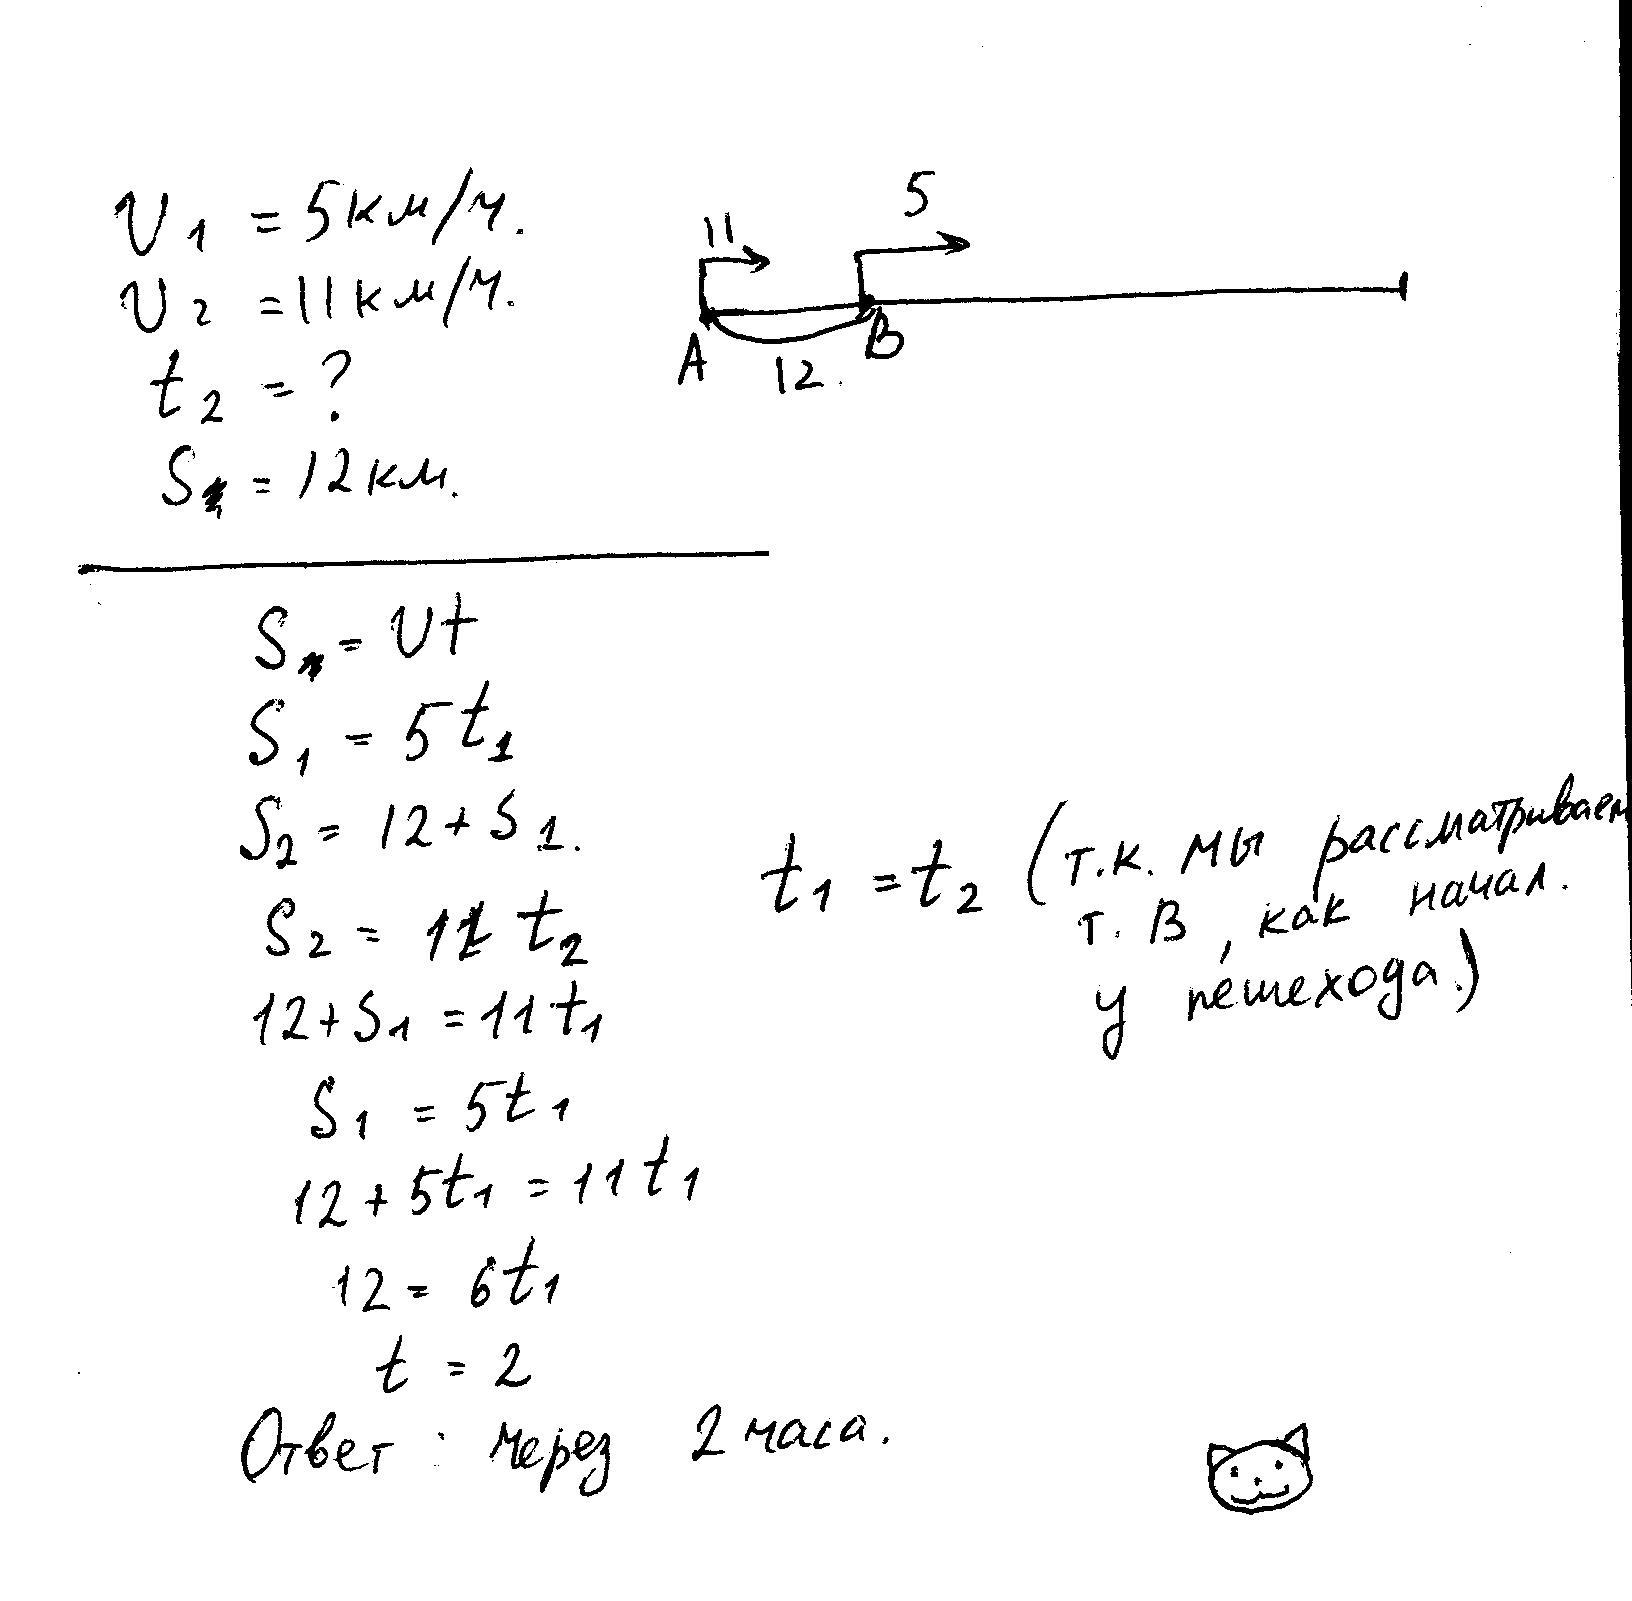 v₁ = 5 км/ч.
v₂ = 11 км/ч.
t₂ = ?
S = 12 км.
11
5
A
B
12.
S = vt
S₁ = 5t₁
S₂ = 12 + S₁.
S₂ = 11 t₂
12 + S₁ = 11t₁
S₁ = 5t₁
12 + 5t₁ = 11t₁
12 = 6t₁
t = 2
Ответ: через 2 часа.
t₁ = t₂ (т.к. мы рассматриваем
т. B, как начал.
у пешехода.)